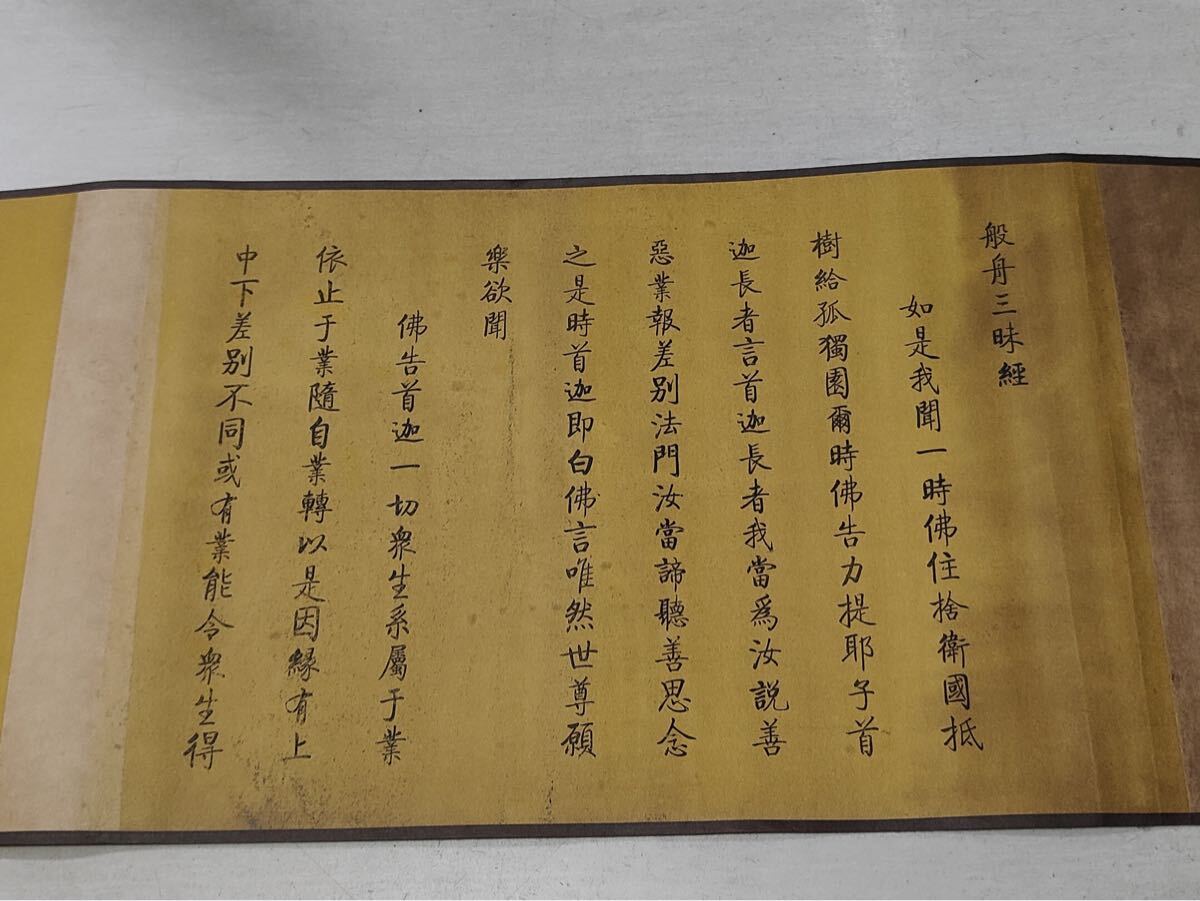 般舟三昧經
如是我聞一時佛住捨衛國抵
樹給孤獨園爾時佛告力提耶子首
迦長者言首迦長者我當爲汝説善
惡業報差别法門汝當諦聽善思念
之是時首迦即白佛言唯然世尊願
樂欲聞
佛告首迦一切衆生系屬于業
依止于業隨自業轉以是因緣有上
中下差别不同或有業能令衆生得